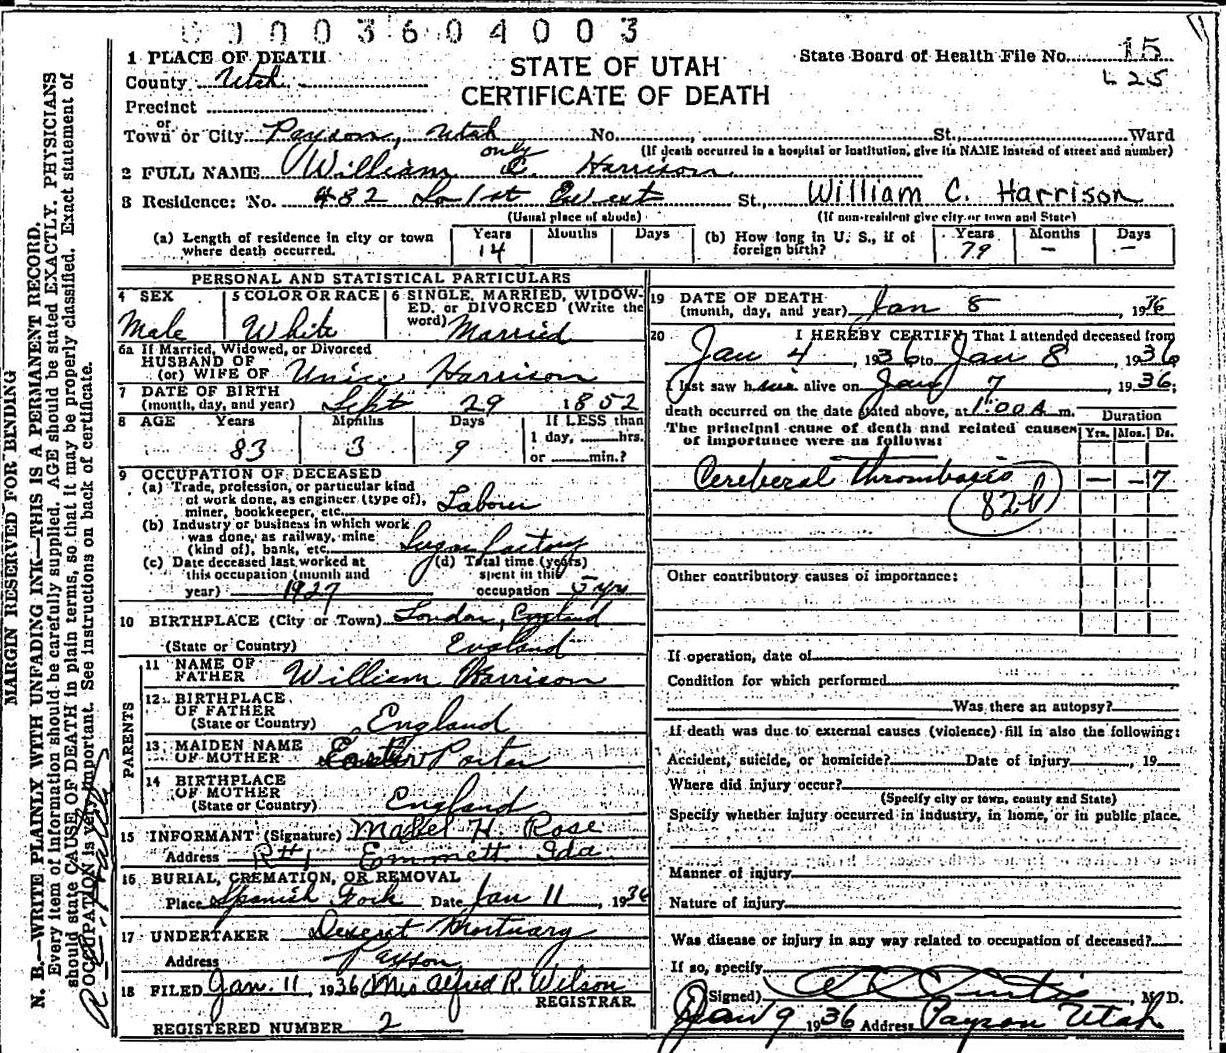 0 0 0 3 6 0 4 0 0 3
State Board of Health File No. 15
625
STATE OF UTAH
CERTIFICATE OF DEATH
1 PLACE OF DEATH
County Utah
Precinct
or
Town or City Payson, Utah No. , St., Ward
(If death occurred in a hospital or institution, give its NAME instead of street and number)
only
2 FULL NAME William C. Harrison
3 Residence: No. 482 So 1st West St., William C. Harrison
(Usual place of abode) (If non-resident give city or town and State)
(a) Length of residence in city or town where death occurred. Years 14 Months Days
(b) How long in U. S., if of foreign birth? Years 79 Months — Days —
PERSONAL AND STATISTICAL PARTICULARS
4 SEX Male
5 COLOR OR RACE White
6 SINGLE, MARRIED, WIDOW-
ED, or DIVORCED (Write the
word) Married
6a If Married, Widowed, or Divorced
HUSBAND OF
(or) WIFE OF Unice Harrison
7 DATE OF BIRTH
(month, day, and year) Sept 29 1852
8 AGE Years 83 Months 3 Days 9 If LESS than
1 day, hrs.
or min.?
9 OCCUPATION OF DECEASED
(a) Trade, profession, or particular kind
of work done, as engineer (type of),
miner, bookkeeper, etc. Laborer
(b) Industry or business in which work
was done, as railway, mine
(kind of), bank, etc. Sugar factory
(c) Date deceased last worked at
this occupation (month and
year) 1927
(d) Total time (years)
spent in this
occupation 5 yrs
10 BIRTHPLACE (City or Town) London, England
(State or Country) England
PARENTS
11 NAME OF
FATHER William Harrison
12 BIRTHPLACE
OF FATHER
(State or Country) England
13 MAIDEN NAME
OF MOTHER Porter
14 BIRTHPLACE
OF MOTHER
(State or Country) England
15 INFORMANT (Signature) Mabel H. Rose
Address R#1 Emmett Ida
16 BURIAL, CREMATION, OR REMOVAL
Place Spanish Fork Date Jan 11, 1936
17 UNDERTAKER Deseret Mortuary
Address Payson
18 FILED Jan. 11, 1936 Mrs Alfred R. Wilson
REGISTRAR
REGISTERED NUMBER 2
19 DATE OF DEATH
(month, day, and year) Jan 8, 1936
20 I HEREBY CERTIFY, That I attended deceased from
Jan 4, 1936 to Jan 8, 1936
I last saw him alive on Jan 7 1936;
death occurred on the date stated above, at 1:00 A m.
The principal cause of death and related causes
of importance were as follows:
Duration
Yrs. Mos. Ds.
Cereberal thrombosis — — 7
82b
Other contributory causes of importance:
If operation, date of
Condition for which performed
Was there an autopsy?
If death was due to external causes (violence) fill in also the following:
Accident, suicide, or homicide? Date of injury , 19
Where did injury occur?
(Specify city or town, county and State)
Specify whether injury occurred in industry, in home, or in public place.
Manner of injury
Nature of injury
Was disease or injury in any way related to occupation of deceased?
If so, specify
(Signed) Curtis, M. D.
Jan 9 1936 Address Payson Utah
MARGIN RESERVED FOR BINDING
N. B.—WRITE PLAINLY WITH UNFADING INK—THIS IS A PERMANENT RECORD.
Every item of information should be carefully supplied. AGE should be stated EXACTLY. PHYSICIANS
should state CAUSE OF DEATH in plain terms, so that it may be properly classified. Exact statement of
OCCUPATION is very important. See instructions on back of certificate.